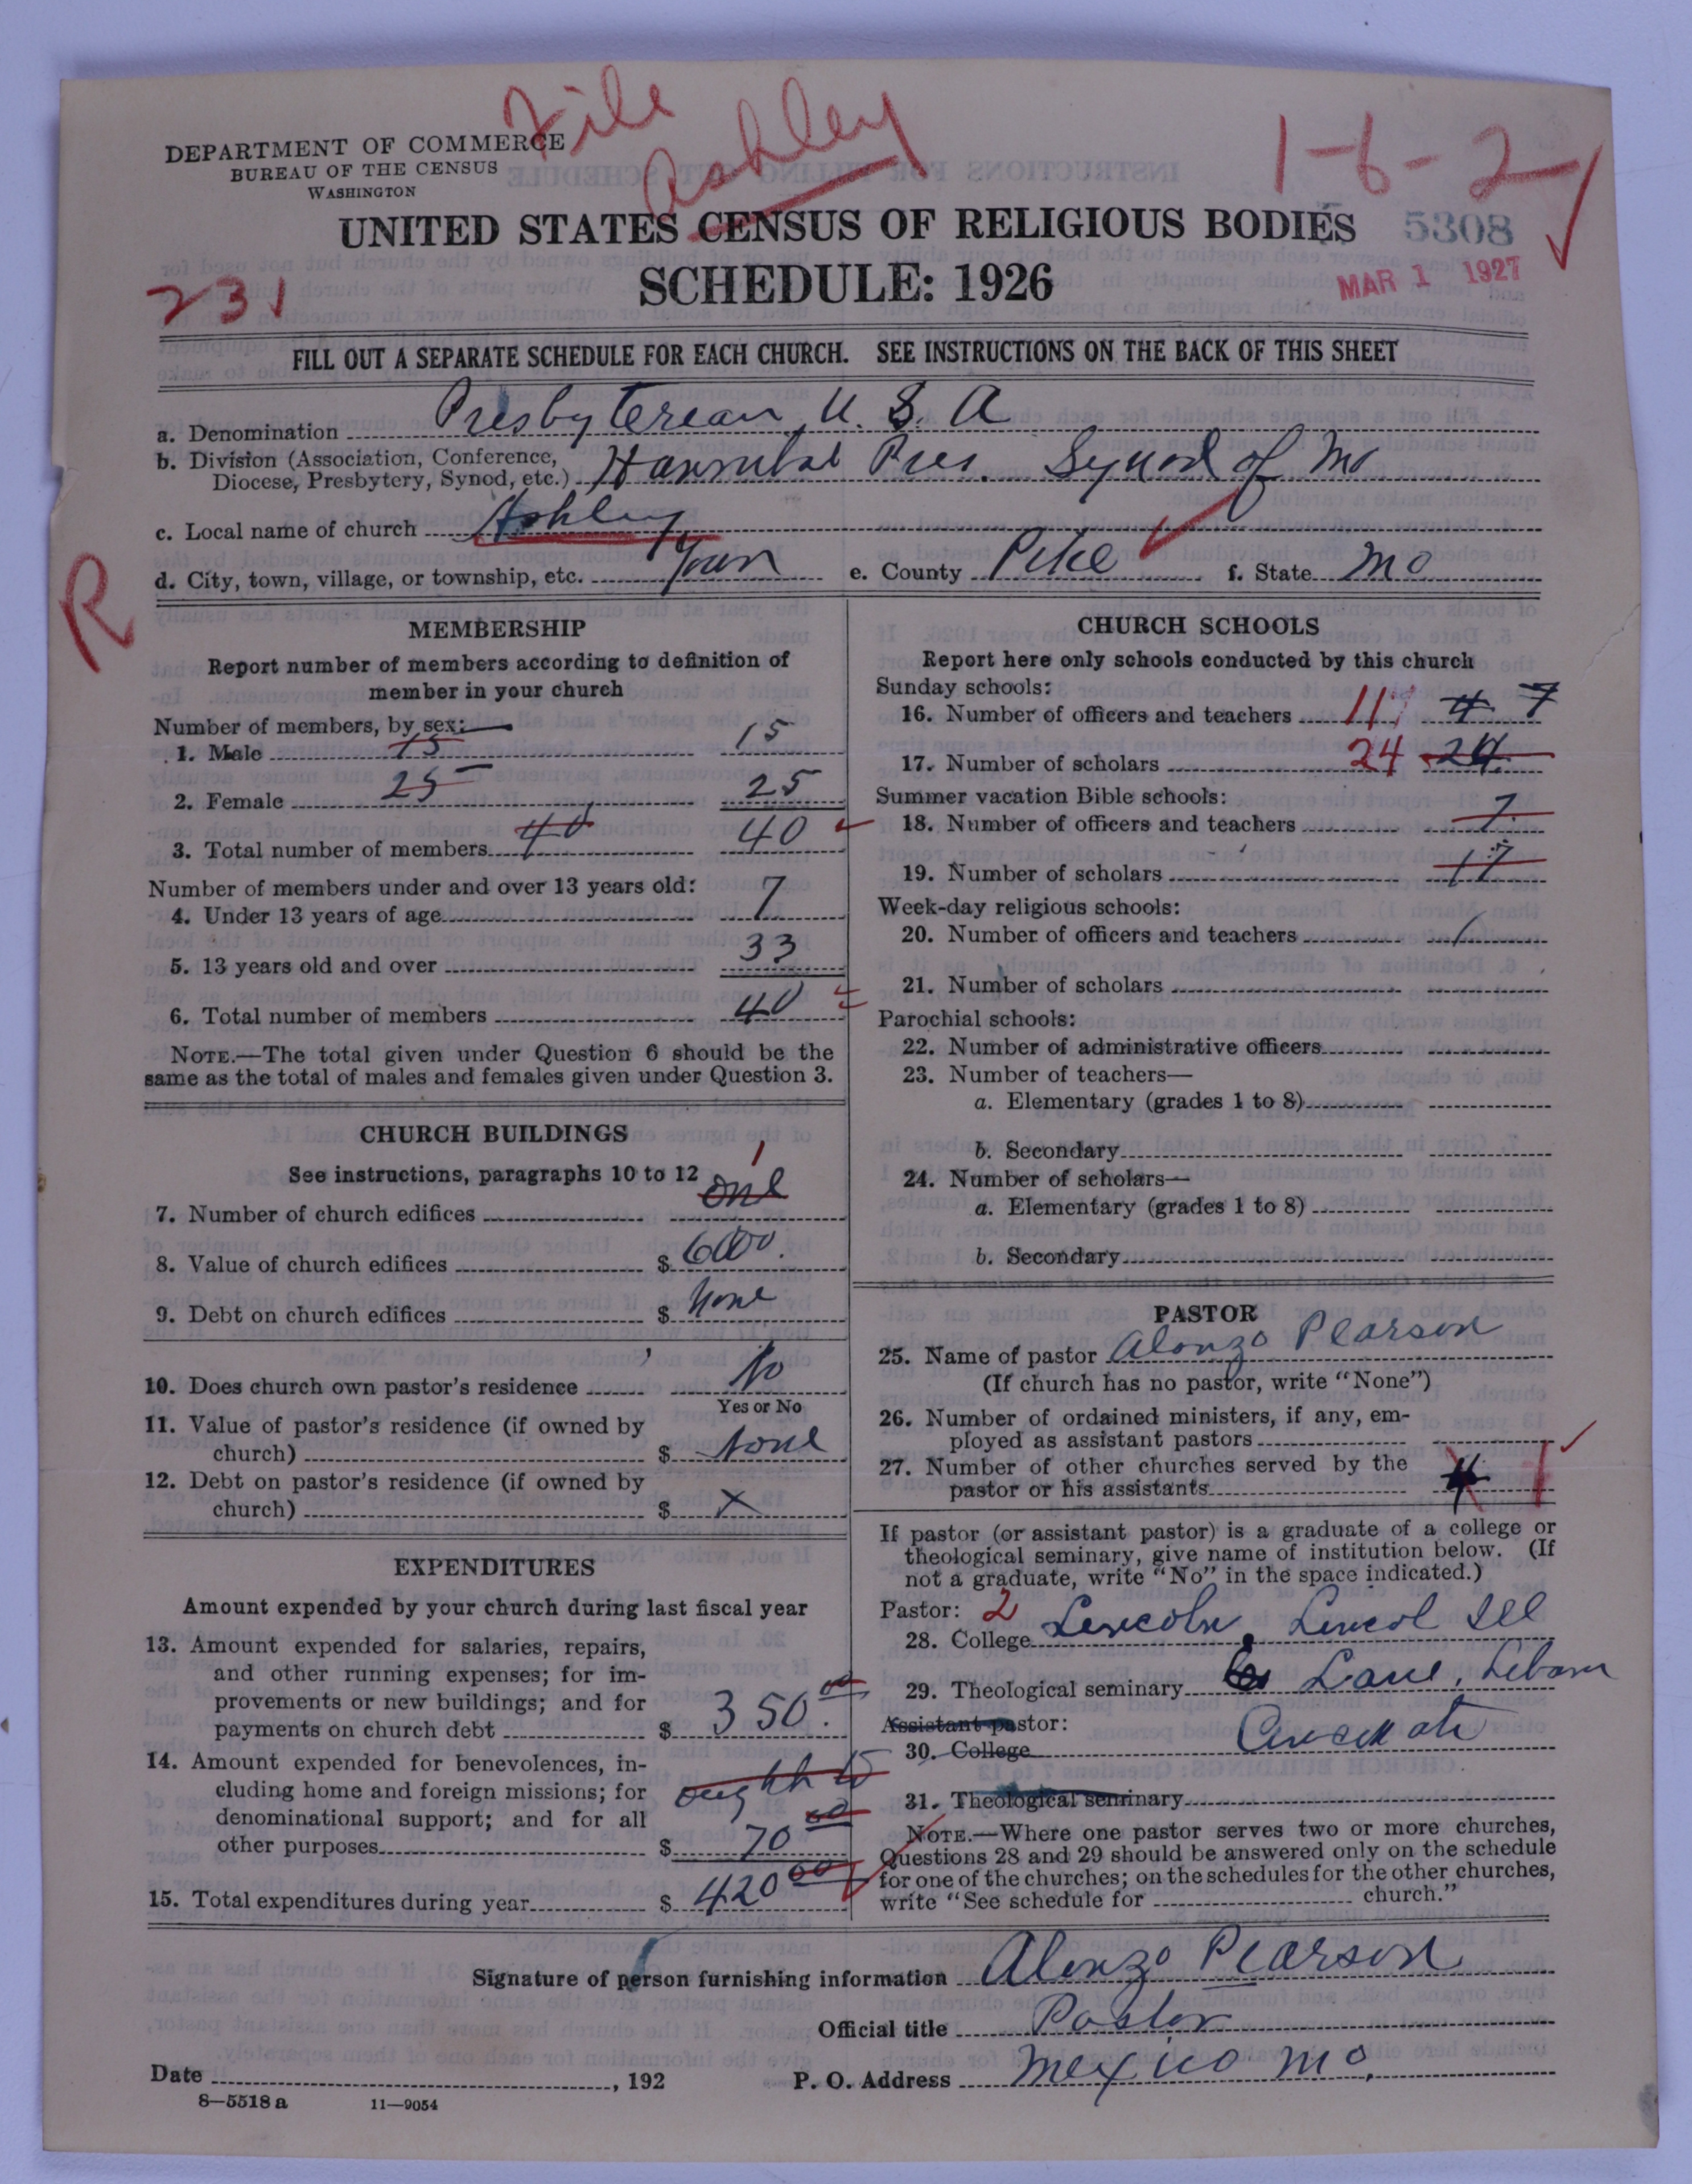 File
Ashley
1-6-2
DEPARTMENT OF COMMERCE
BUREAU OF THE CENSUS
WASHINGTON
UNITED STATES CENSUS OF RELIGIOUS BODIES 5308
SCHEDULE: 1926
MAR 1 1927
231
FILL OUT A SEPARATE SCHEDULE FOR EACH CHURCH. SEE INSTRUCTIONS ON THE BACK OF THIS SHEET
a. Denomination Presbyterean U. S. A
b. Division (Association, Conference,
Diocese, Presbytery, Synod, etc.) Hannibal Pres. Synod of Mo
c. Local name of church Ashley
d. City, town, village, or township, etc. Town e. County Pike f. State Mo
R
MEMBERSHIP
Report number of members according to definition of
member in your church
Number of members, by sex:
1. Male 15 15
2. Female 25 25
3. Total number of members 40 40
Number of members under and over 13 years old:
4. Under 13 years of age 7
5. 13 years old and over 33
6. Total number of members 40
NOTE.—The total given under Question 6 should be the
same as the total of males and females given under Question 3.
CHURCH BUILDINGS
See instructions, paragraphs 10 to 12
1
7. Number of church edifices one
8. Value of church edifices $ 6000.
9. Debt on church edifices $ None
10. Does church own pastor's residence No
Yes or No
11. Value of pastor's residence (if owned by
church) $ None
12. Debt on pastor's residence (if owned by
church) $ X
EXPENDITURES
Amount expended by your church during last fiscal year
13. Amount expended for salaries, repairs,
and other running expenses; for im-
provements or new buildings; and for
payments on church debt $ 350.00
14. Amount expended for benevolences, in-
cluding home and foreign missions; for
denominational support; and for all
other purposes $ 70 00
15. Total expenditures during year $ 420 00
CHURCH SCHOOLS
Report here only schools conducted by this church
Sunday schools:
16. Number of officers and teachers 11 4 7
17. Number of scholars 24 24
Summer vacation Bible schools:
18. Number of officers and teachers 7
19. Number of scholars 17
Week-day religious schools:
20. Number of officers and teachers
21. Number of scholars
Parochial schools:
22. Number of administrative officers
23. Number of teachers—
a. Elementary (grades 1 to 8)
b. Secondary
24. Number of scholars—
a. Elementary (grades 1 to 8)
b. Secondary
PASTOR
25. Name of pastor Alonzo Pearson
(If church has no pastor, write "None")
26. Number of ordained ministers, if any, em-
ployed as assistant pastors
27. Number of other churches served by the
pastor or his assistants 4 1
If pastor (or assistant pastor) is a graduate of a college or
theological seminary, give name of institution below. (If
not a graduate, write "No" in the space indicated.)
Pastor: 2
28. College Lincoln, Lincol Ill
29. Theological seminary Lane,
Assistant pastor:
30. College
31. Theological seminary
NOTE.—Where one pastor serves two or more churches,
Questions 28 and 29 should be answered only on the schedule
for one of the churches; on the schedules for the other churches,
write "See schedule for church."
Signature of person furnishing information Alonzo Pearson
Official title Pastor
Date , 192 P. O. Address Mexico Mo.
8—5518 a 11—9054